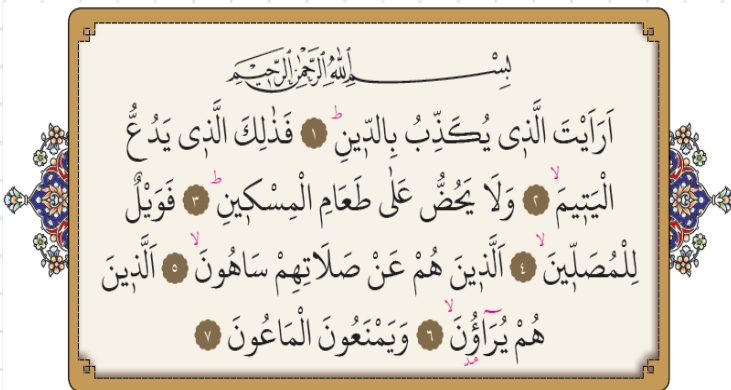 بِسْمِ اللّٰهِ الرَّحْمٰنِ الرَّحِيمِ
اَرَاَيْتَ الَّذٖى يُكَذِّبُ بِالدّٖينِ ط ١ فَذٰلِكَ الَّذٖى يَدُعُّ
الْيَتٖيمَ لا ٢ وَلَا يَحُضُّ عَلٰى طَعَامِ الْمِسْكٖينِ ط ٣ فَوَيْلٌ
لِلْمُصَلّٖينَ لا ٤ اَلَّذٖينَ هُمْ عَنْ صَلَاتِهِمْ سَاهُونَ لا ٥ اَلَّذٖينَ
هُمْ يُرَٓاؤُ۫نَ لا ٦ وَيَمْنَعُونَ الْمَاعُونَ ٧
مد